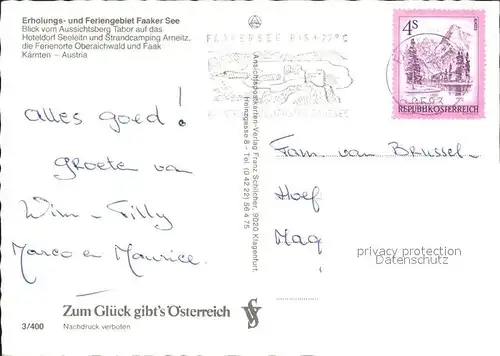 Erholungs- und Feriengebiet Faaker See
Blick vom Aussichtsberg Tabor auf das
Hoteldorf Seeleitn und Strandcamping Arneitz,
die Ferienorte Oberaichwald und Faak
Kärnten – Austria
FAAKERSEE BIS +27°C
4S
REPUBLIK ÖSTERREICH
Alles goed!
groeten van
Wim - Tilly
Marco en Maurice.
Ansichtspostkarten-Verlag Franz Schilcher, 9020 Klagenfurt,
Herzgasse 8 - Tel. (0 42 22) 56 4 75
Fam. van Brussel
Hoef
Maq
privacy protection
Datenschutz
Zum Glück gibt's Österreich
3/400
Nachdruck verboten